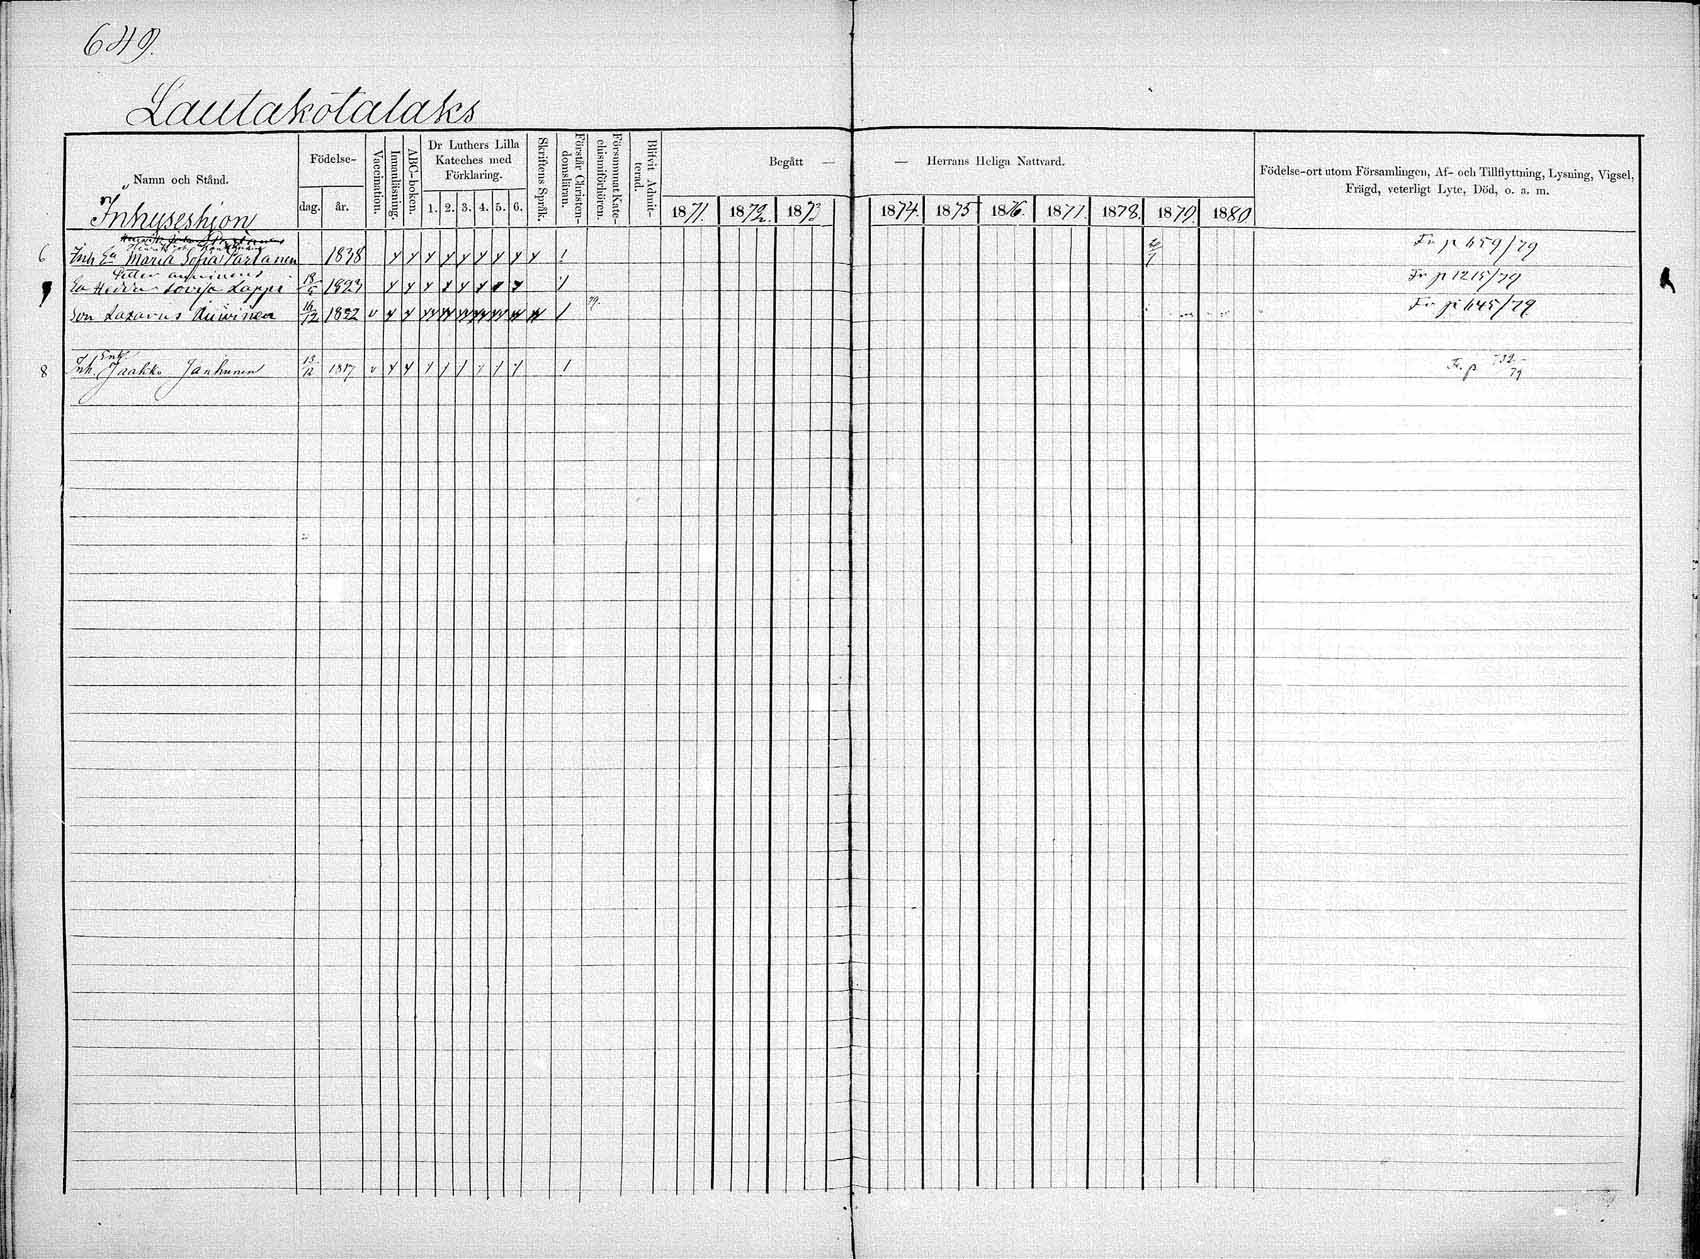 649.
Lautakotalaks
Namn och Stånd.
Inhyseshjon
Födelse-
dag. år.
Vaccination.
Innanläsning.
ABC-boken.
Dr Luthers Lilla
Kateches med
Förklaring.
1. 2. 3. 4. 5. 6.
Skriftens Språk.
Förstår Christen-
domsläran.
Försummat Kate-
chismiförhören.
Blifvit Admit-
terad.
Begått — — Herrans Heliga Nattvard.
1871. 1872. 1873 1874. 1875 1876. 1877. 1878. 1879. 1880
Födelse-ort utom Församlingen, Af- och Tillflyttning, Lysning, Vigsel,
Frägd, veterligt Lyte, Död, o. a. m.
6 Inh Ea Maria Sofia Partanen 1838 Fr p 659/79
Ea Hedda Lovisa Lappi 18/5 1823 Fr p 1215/79
Son Lazarus 16/12 79. Fr p 645/79
Enk.
8 Inh. Jaakko Janhunen 13/12 1817 v Fr. p